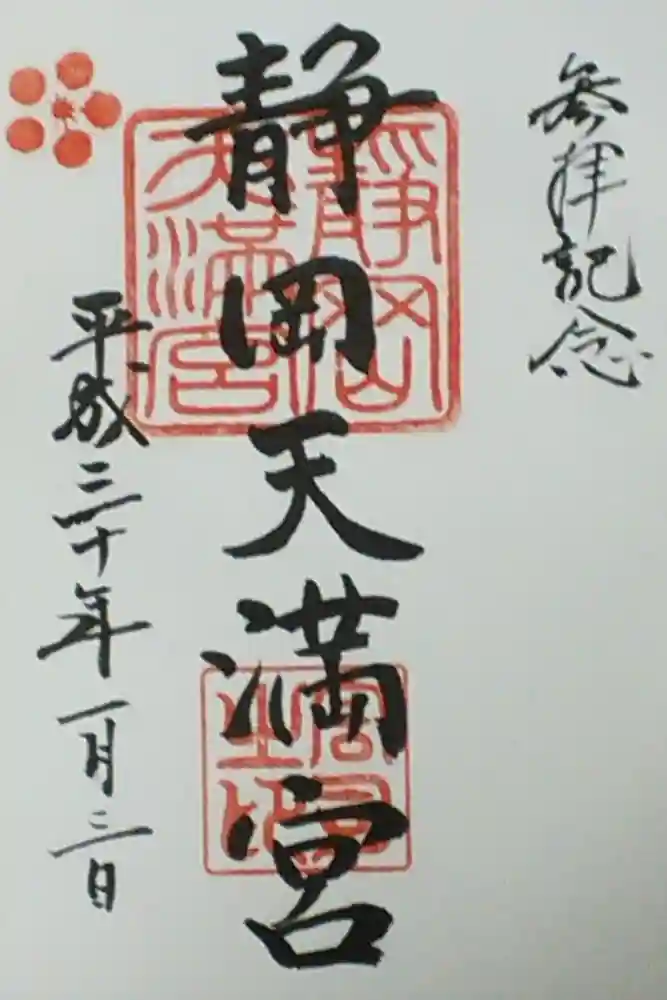 参拝記念
静岡天満宮
平成三十年一月三日
静岡
天満宮
宮司
之印